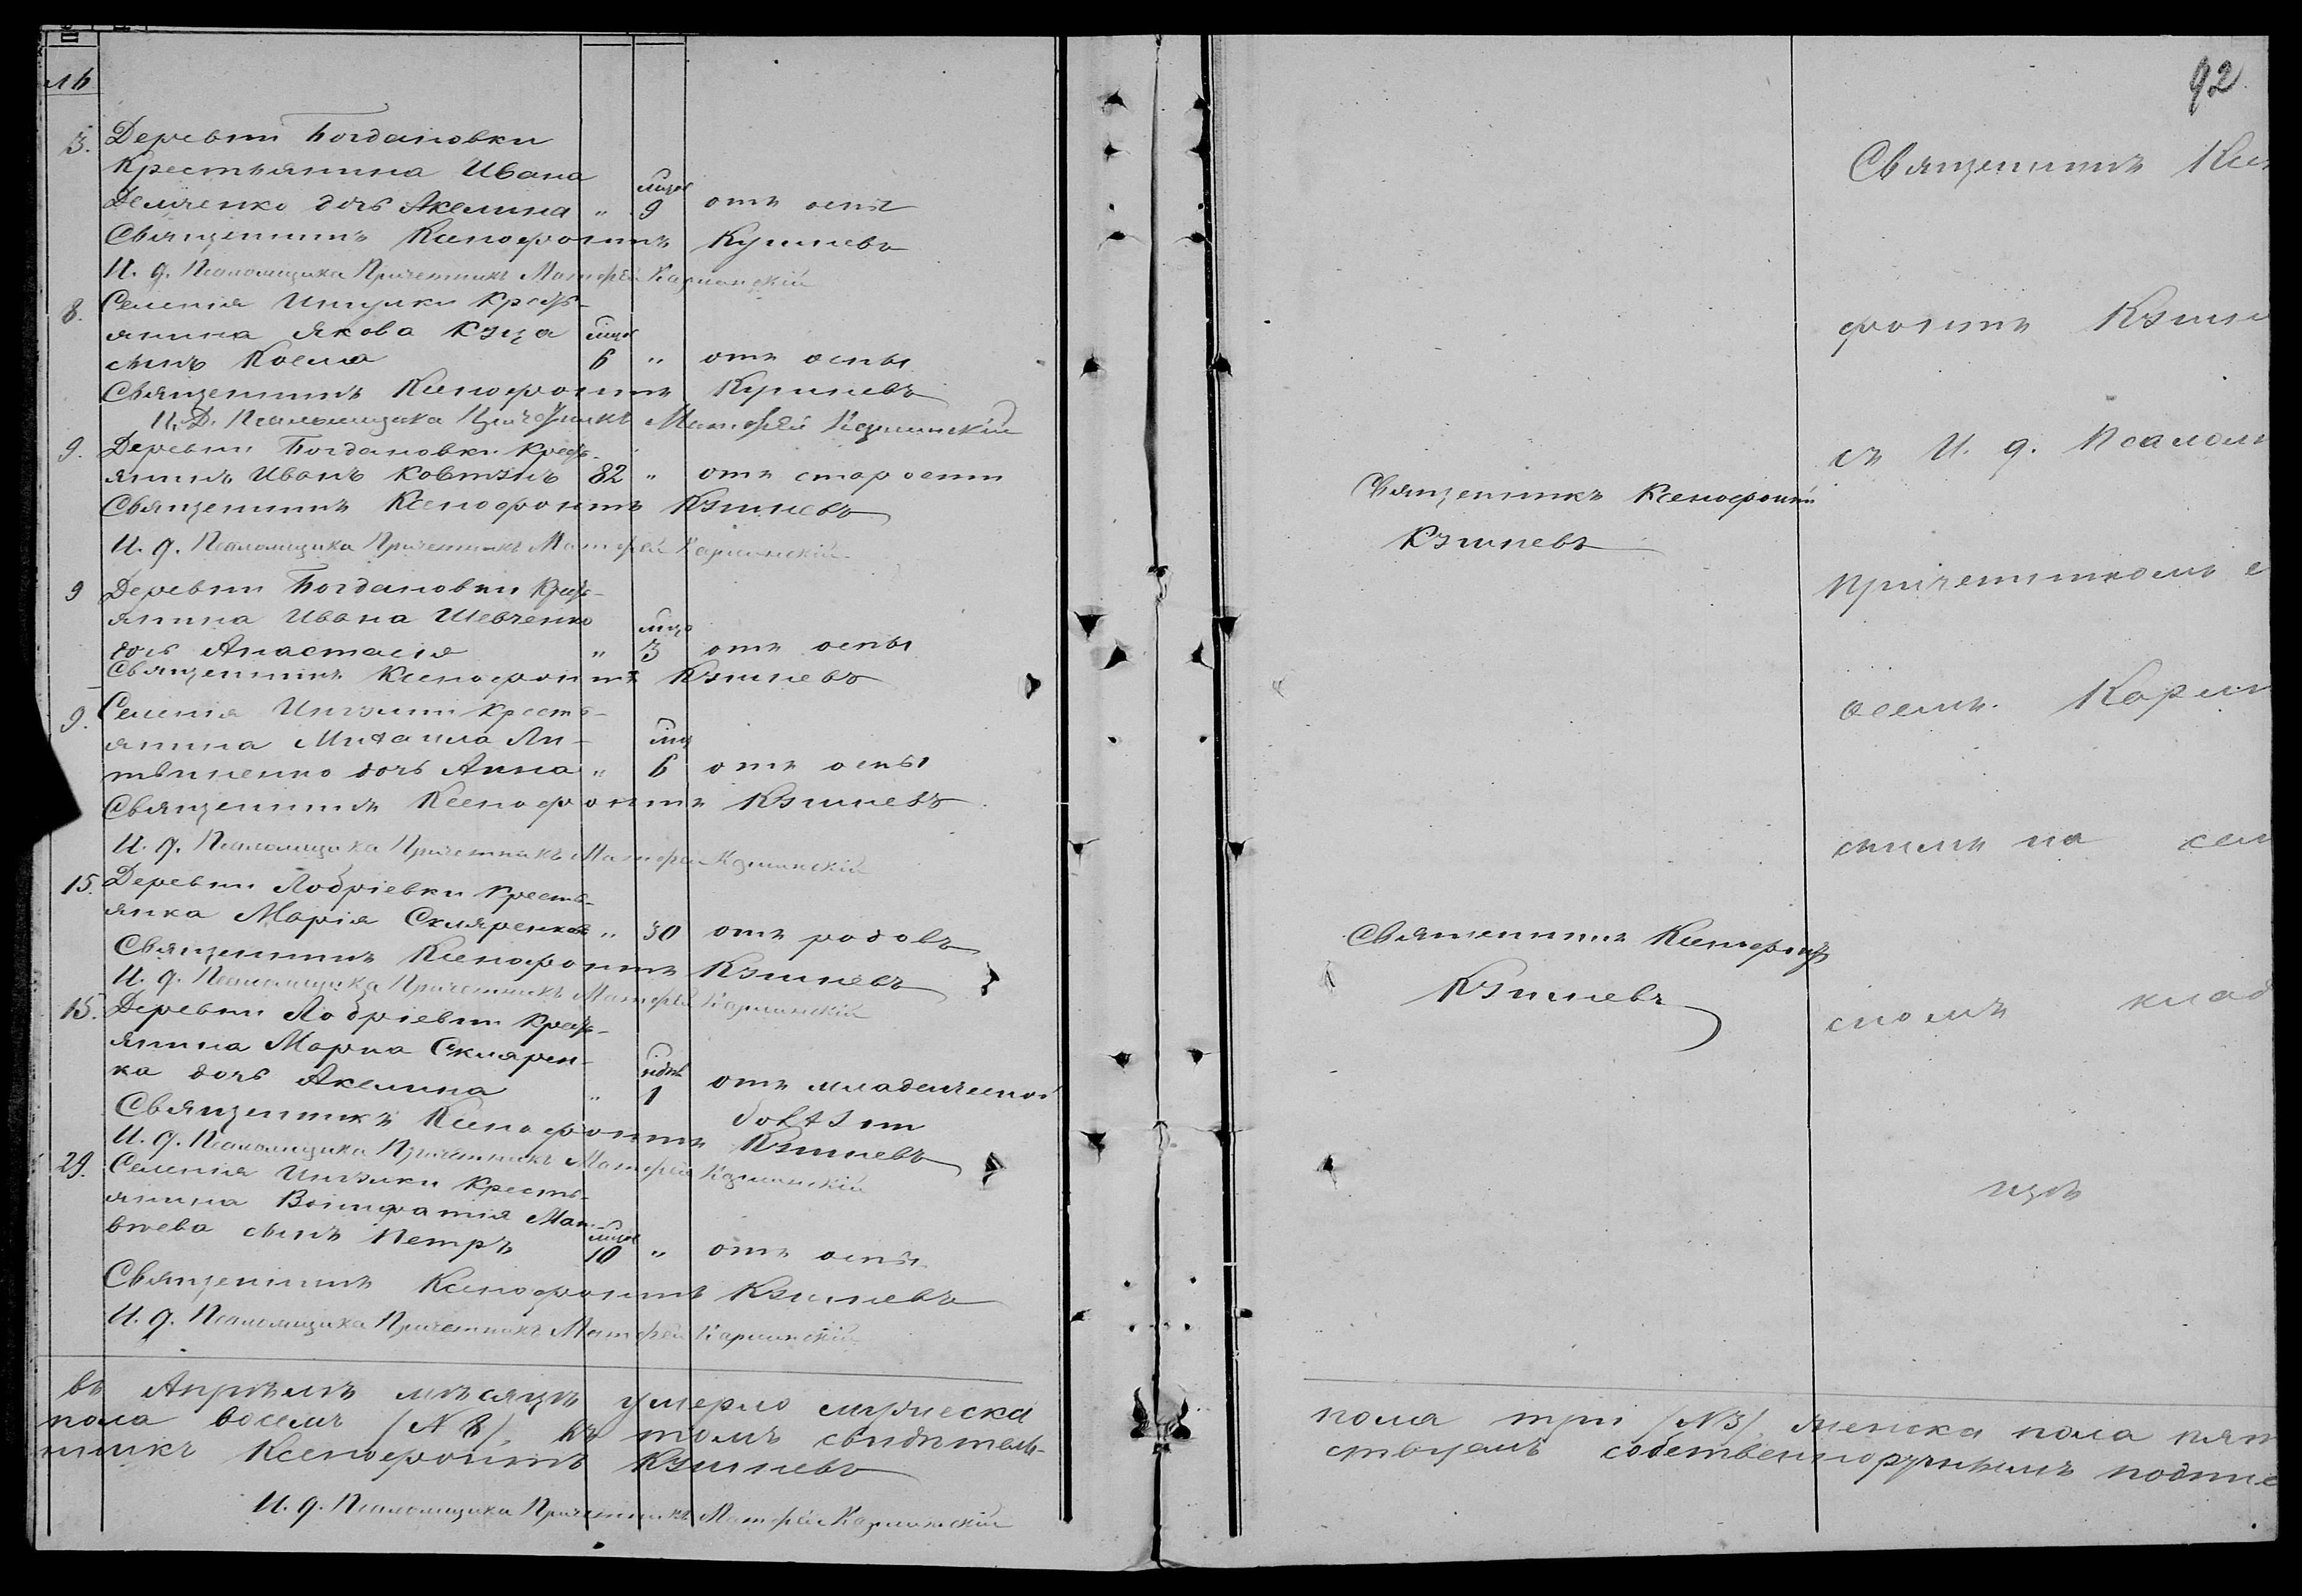 3. Деревни Богдановки
Крестьянина Ивана
Демченко дочь Акелина " 9 отъ оспы
Священникъ Ксенофонтъ Кушневъ
И. д. Псаломщика Причетникъ Матфей
8. Селенія Ингулки Кресть-
янина Якова Куца
сынъ Косма 6 " отъ оспы
Священникъ Ксенофонтъ Кушневъ
И. Д. Псаломщика Причетникъ Матфей
9. Деревни Богдановки Кресть-
янинъ Иванъ Ковтунъ 82 " отъ старости
Священникъ Ксенофонтъ Кушневъ
И. д. Псаломщика Причетникъ Матфей
9 Деревни Богдановки Кресть-
янина Ивана Шевченко
дочь Анастасія " 3 отъ оспы
Священникъ Ксенофонтъ Кушневъ
9. Селенія Ингулки Кресть-
янина Михаила Ли-
дочь Анна " 6 отъ оспы
Священникъ Ксенофонтъ Кушневъ
И. д. Псаломщика Причетникъ Матфей
15. Деревни Кресть-
янка Марія Скляренкова " 30 отъ родовъ
Священникъ Ксенофонтъ Кушневъ
И. д. Псаломщика Причетникъ Матфей
15. Деревни Кресть-
янина Марка Склярен-
ка дочь Акелина " 1 отъ младенческой
болѣзни
Священникъ Ксенофонтъ Кушневъ
И. д. Псаломщика Причетникъ Матфей
29. Селенія Ингулки Кресть-
янина Вонифатія Мат-
вѣева сынъ Петръ 10 " отъ оспы
Священникъ Ксенофонтъ Кушневъ
И. д. Псаломщика Причетникъ Матфей
въ Апрѣлѣ мѣсяцѣ умерло мужеска
пола восемь (N 8). въ томъ свидѣтель-
никъ Ксенофонтъ Кушневъ
И. д. Псаломщика Причетникъ Матфей
92
Священникъ Ксен
фонтъ Кушн
съ И. д. Псалом
Священникъ Ксенофонтъ
Кушневъ
Причетникомъ
Карми
скимъ на сел
Священникъ Ксенофонтъ
Кушневъ
скомъ клад
ищѣ
пола три (N3) женска пола пят
ствуемъ собственноручнымъ подпис